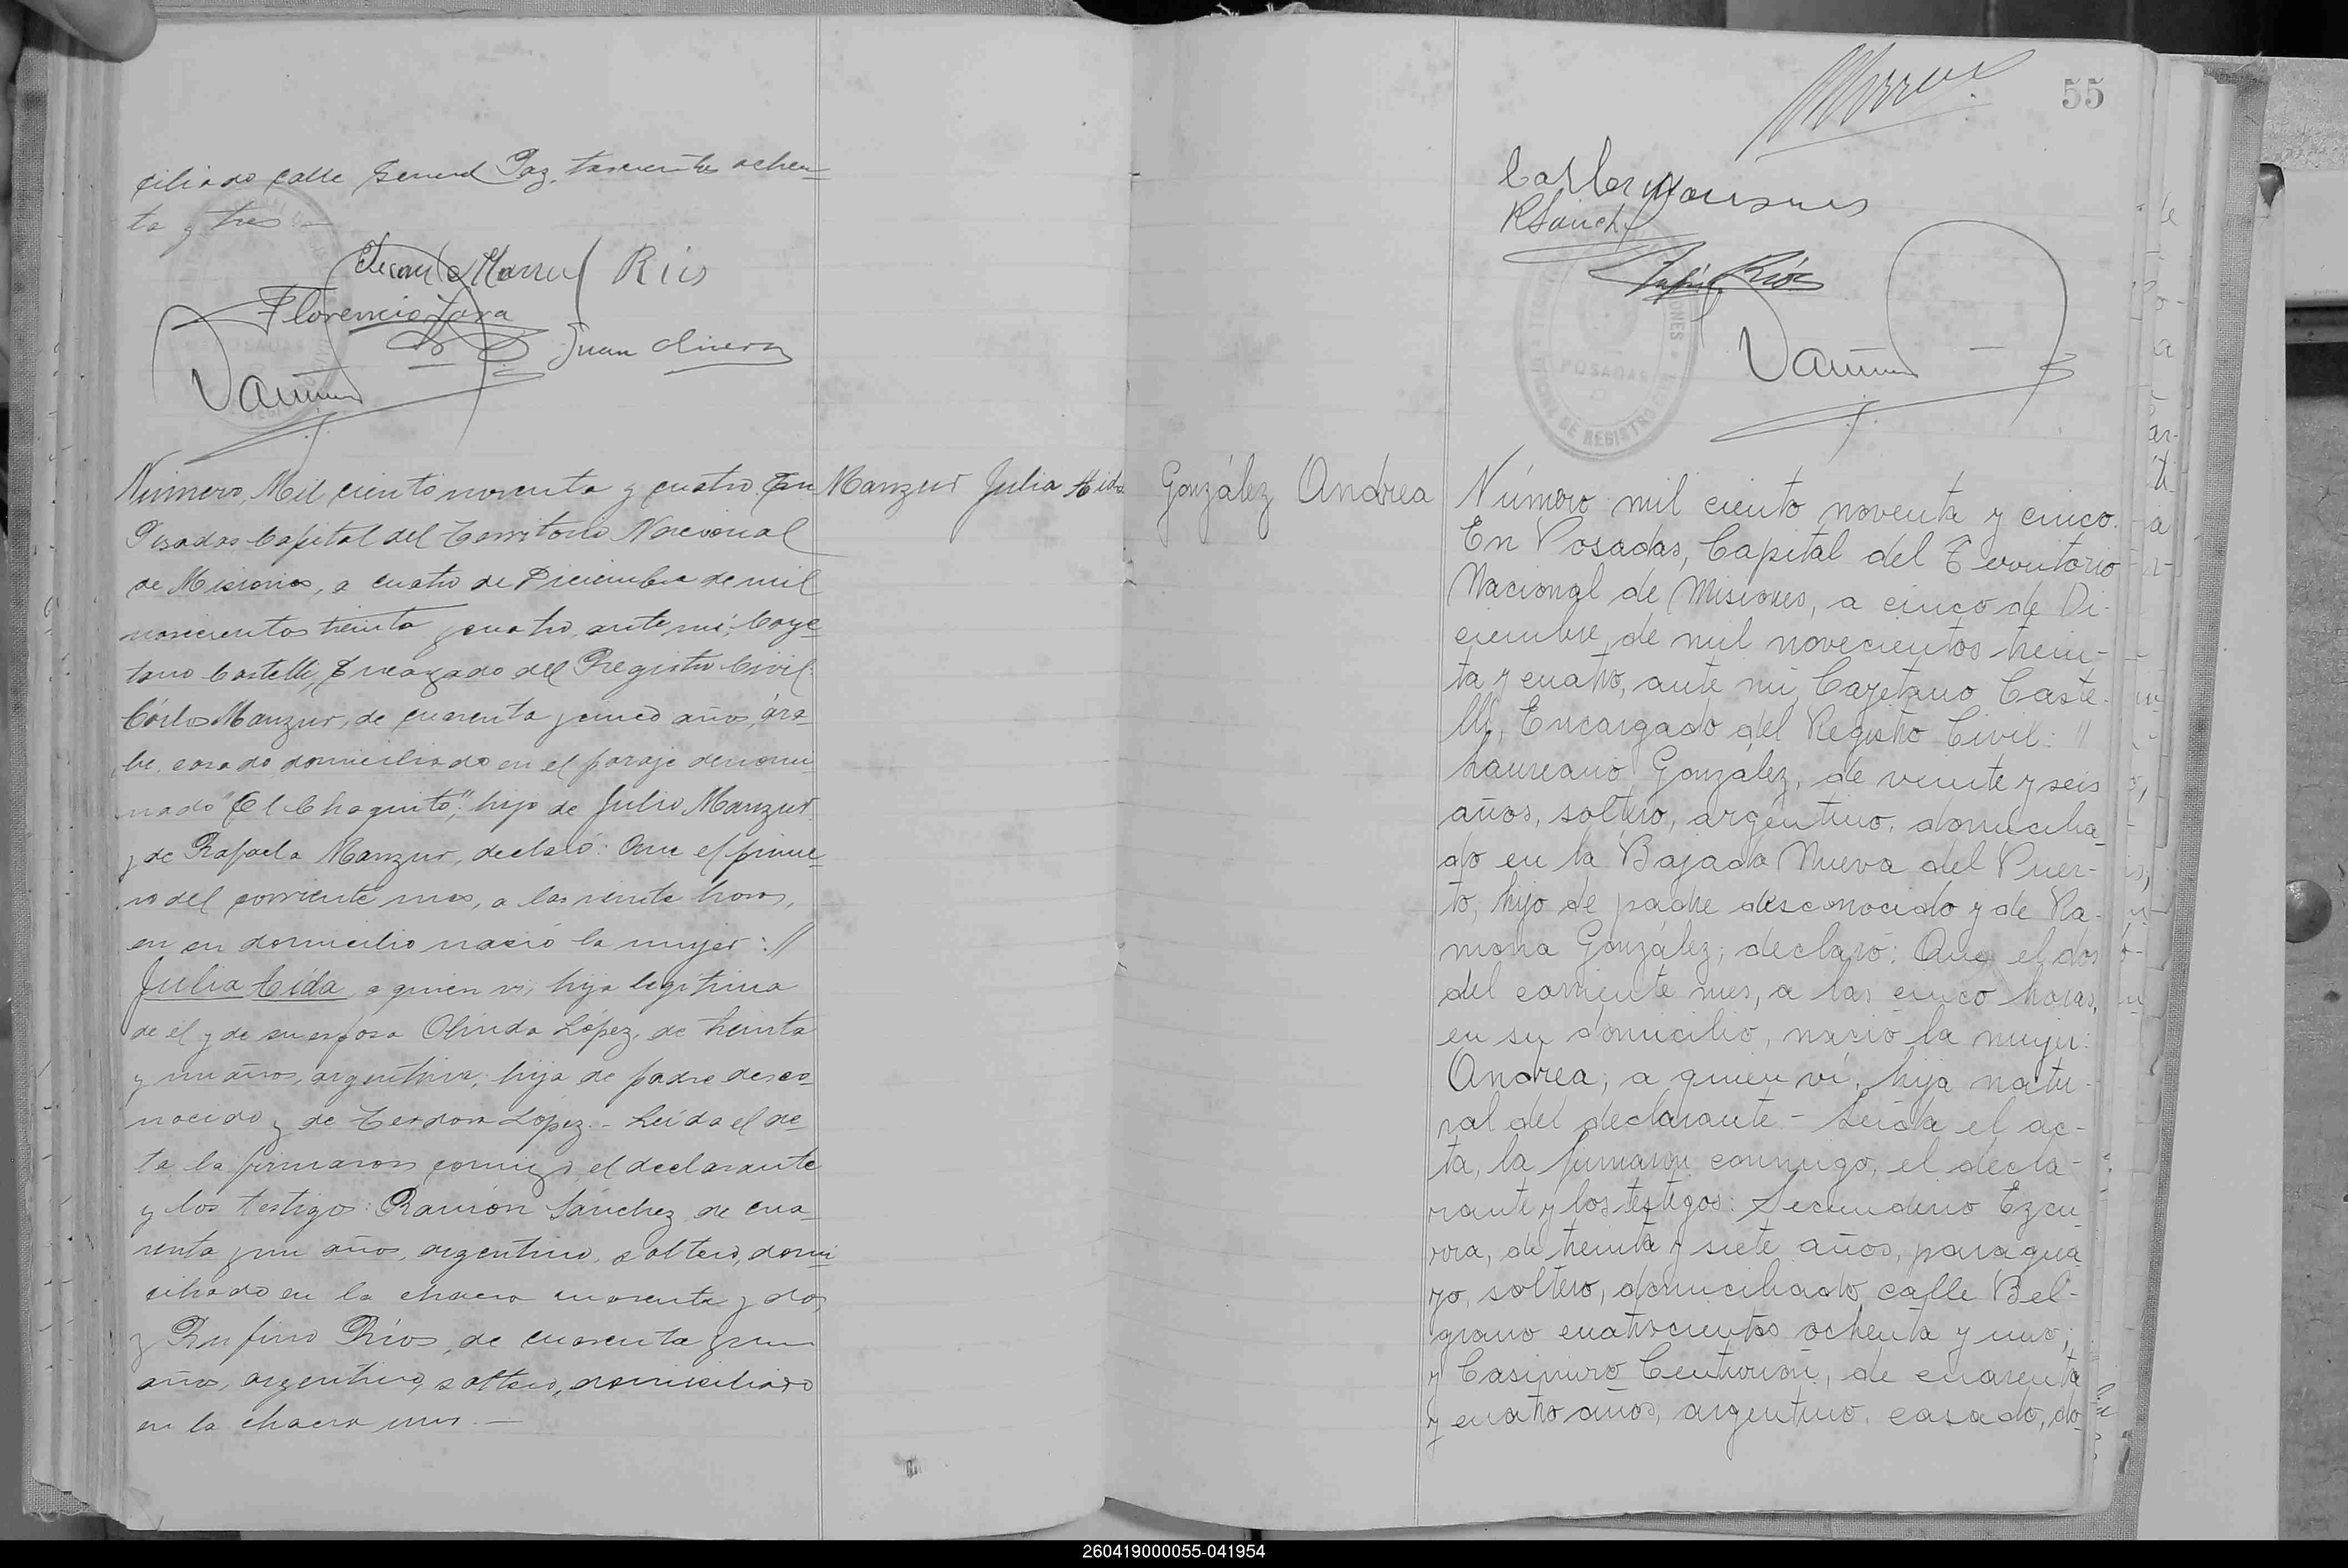 ciliado calle General Paz, trescientos ochen-
ta y tres —
Juan Manuel Ríos
Florencio Jara
Juan Olivera
Número, Mil ciento noventa y cuatro. En
Manzur Julia Aida
Posadas Capital del Territorio Nacional
de Misiones, a cuatro de Diciembre de mil
novecientos treinta y cuatro, ante mí, Caye-
tano Castelli, Encargado del Registro Civil:
Cárlos Manzur, de cuarenta y cinco años, ára-
be, casado domiciliado en el paraje denomi-
nado "El Chaquito", hijo de Julio Manzur
y de Rafaela Manzur, declaró: Que el prime-
ro del corriente mes, a las veinte horas,
en su domicilio nació la mujer: //
Julia Aída, a quien vi, hija legítima
de él y de su esposa Olinda López, de treinta
y un años, argentina, hija de padre desco-
nocido y de López. - Leída el ac-
ta la firmaron conmigo, el declarante
y los testigos: Ramón Sánchez de cua-
renta y un años, argentino, soltero, domi-
ciliado en la chacra cuarenta y dos,
y Rufino Ríos, de cuarenta y un
años, argentino, soltero, domiciliado
en la chacra uno. —
55
Carlos Manzur
R Sanchez
Rufino Ríos
POSADAS
OFICINA DE REGISTRO
González Andrea
Número mil ciento noventa y cinco.
En Posadas, Capital del Territorio
Nacional de Misiones, a cinco de Di-
ciembre, de mil novecientos trein-
ta y cuatro, ante mí, Cayetano Caste-
lli, Encargado del Registro Civil: //
Laureano González, de veinte y seis
años, soltero, argentino, domicilia-
do en la Bajada Nueva del Puer-
to, hijo de padre desconocido y de Ra-
mona González; declaró: Que el dos
del corriente mes, a las cinco horas,
en su domicilio, nació la mujer:
Andrea, a quien ví, hija natu-
ral del declarante - Leída el ac-
ta, la firmaron conmigo, el decla-
rante y los testigos: Secundino Ezcu-
rra, de treinta y siete años, paragua-
yo, soltero, domiciliado calle Bel-
grano cuatrocientos ochenta y uno;
y Casimiro Centurión, de cuarenta
y cuatro años, argentino, casado, do-
260419000055-041954